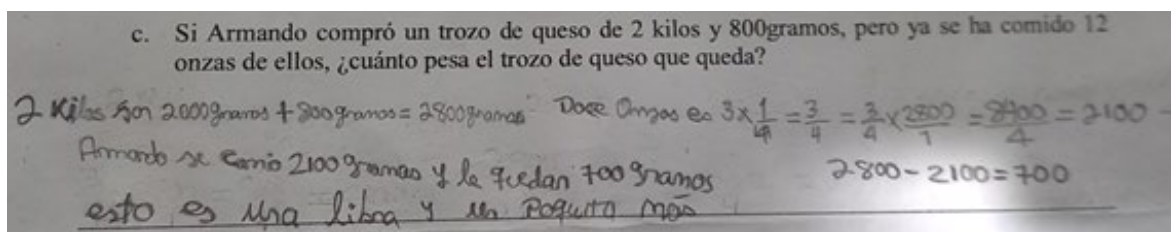 c. Si Armando compró un trozo de queso de 2 kilos y 800gramos, pero ya se ha comido 12
onzas de ellos, ¿cuánto pesa el trozo de queso que queda?
2 Kilos son 2000gramos + 800gramos = 2800gramos Doce Onzas es 3x1/4 = 3/4 = 3/4 x 2800/1 = 8400/4 = 2100
Armando se comio 2100 gramos y le quedan 700 gramos
2.800 - 2100 = 700
esto es una libra y un Poquito mas